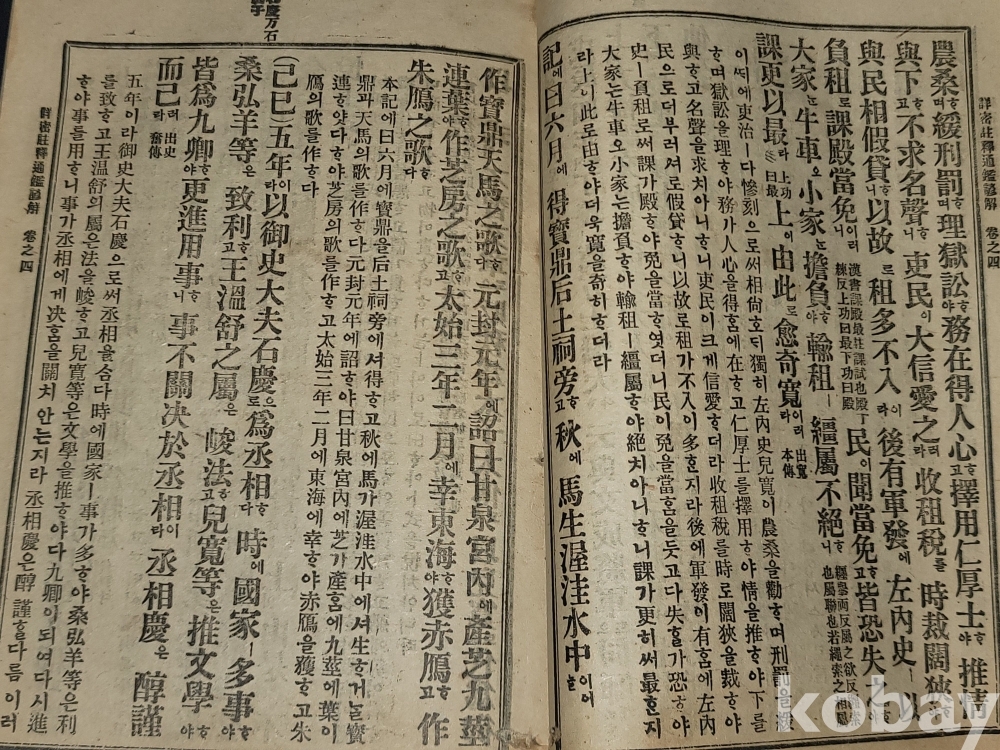 農桑ᄒᆞ며緩刑罰ᄒᆞ며理獄訟ᄒᆞ야務在得人心ᄒᆞ고擇用仁厚士ᄒᆞ야推情
與下ᄒᆞ고不求名聲ᄒᆞ니吏民이大信愛之라ᄒᆞ더라收租稅를時裁闊狹ᄒᆞ야
與民相假貸ᄒᆞ니以故로租多不入이라後有軍發에左內史ㅣ以
負租로課殿當免이러니民이聞當免ᄒᆞ고皆恐失之ᄒᆞ야
大家ᄂᆞᆫ牛車오小家ᄂᆞᆫ擔負ᄒᆞ야輸租ㅣ繦屬不絕ᄒᆞ니
課更以最라上이由此로愈奇寬이러라
이ᄯᅢ에吏治ㅣ다慘刻으로써相尙호ᄃᆡ獨히左內史兒寬이農桑을勸ᄒᆞ며刑罰
ᄒᆞ며獄訟을理ᄒᆞ야務가人心을得ᄒᆞᆷ에在ᄒᆞ고仁厚士를擇用ᄒᆞ야情을推ᄒᆞ야下를
與ᄒᆞ고名聲을求치아니ᄒᆞ니吏民이크게信愛ᄒᆞ더라收租稅를時로闊狹을裁ᄒᆞ야
民으로더부러셔로假貸ᄒᆞ니以故로租가不入이多ᄒᆞᆫ지라後에軍發이有ᄒᆞᆷ에左內
史ㅣ負租로써課가殿ᄒᆞ야免을當ᄒᆞ엿더니民이免을當ᄒᆞᆷ을듯고다失ᄒᆞᆯ가恐ᄒᆞ야
大家ᄂᆞᆫ牛車오小家ᄂᆞᆫ擔負ᄒᆞ야輸租ㅣ繦屬ᄒᆞ야絕치아니ᄒᆞ니課가更히써最ᄒᆞᆫ지
라上이此로由ᄒᆞ야더욱寬을奇히ᄒᆞ더라
記에曰六月에得寶鼎后土祠旁ᄒᆞ고秋에馬生渥洼水中이어ᄂᆞᆯ
詳密註釋通鑑諺解 卷之四
作寶鼎天馬之歌ᄒᆞ다元封元年에詔曰甘泉宮內에產芝九莖
連葉ᄒᆞ야作芝房之歌ᄒᆞ고太始三年二月에幸東海ᄒᆞ야獲赤鴈ᄒᆞ고作
朱鴈之歌ᄒᆞ다
本記에曰六月에寶鼎을后土祠旁에셔得ᄒᆞ고秋에馬가渥洼水中에셔生ᄒᆞ거ᄂᆞᆯ寶
鼎과天馬의歌를作ᄒᆞ다元封元年에詔ᄒᆞ야曰甘泉宮內에芝가產ᄒᆞᆷ에九莖에葉이
連ᄒᆞ얏다ᄒᆞ야芝房의歌를作ᄒᆞ고太始三年二月에東海에幸ᄒᆞ야赤鴈을獲ᄒᆞ고朱
鴈의歌를作ᄒᆞ다
(己巳)五年이라以御史大夫石慶으로爲丞相ᄒᆞ다時에國家ㅣ多事ᄒᆞ야
桑弘羊等은致利ᄒᆞ고王溫舒之屬은峻法ᄒᆞ고兒寬等은推文學ᄒᆞ야
皆爲九卿ᄒᆞ야更進用事ᄒᆞ니事不關决於丞相이라丞相慶은醇謹
而已라
五年이라御史大夫石慶으로써丞相을삼다時에國家ㅣ事가多ᄒᆞ야桑弘羊等은利
를致ᄒᆞ고王溫舒의屬은法을峻ᄒᆞ고兒寬等은文學을推ᄒᆞ야다九卿이되여다시進
ᄒᆞ야事를用ᄒᆞ니事가丞相에게决ᄒᆞᆷ을關치안ᄂᆞᆫ지라丞相慶은醇謹ᄒᆞᆯ다름이러
詳密註釋通鑑諺解 卷之四
kobay